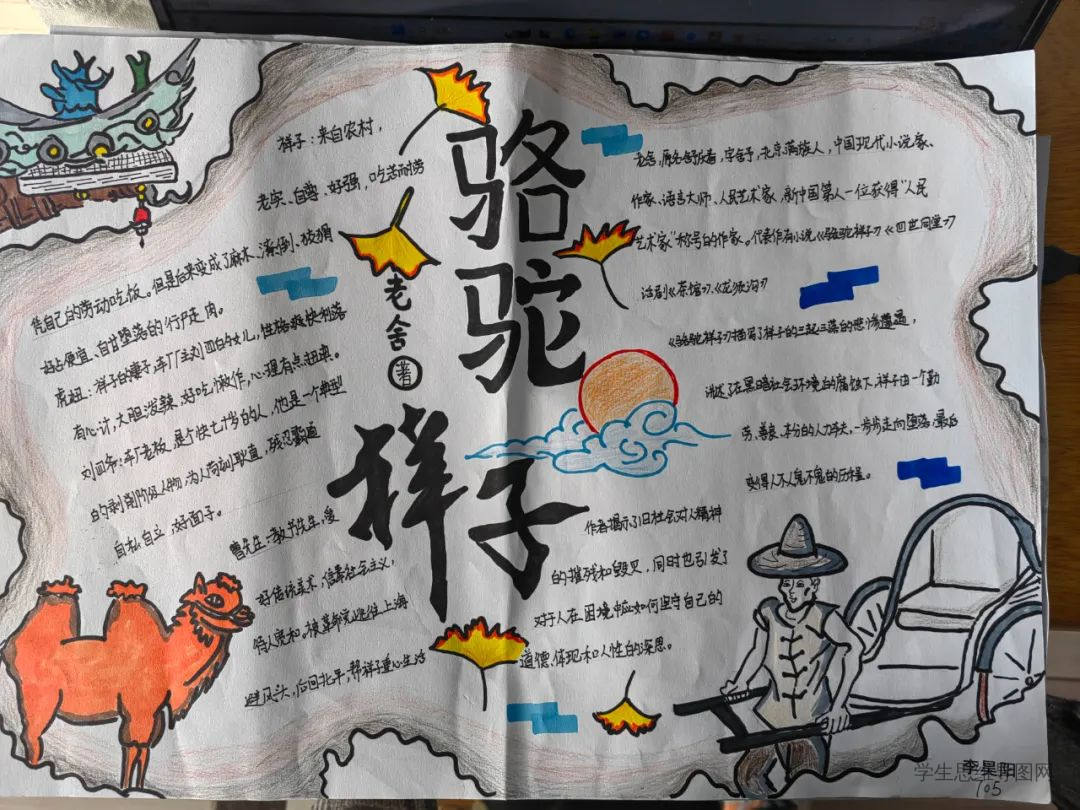 骆驼
祥子
老舍著
祥子：来自农村，
老实、自尊、好强，吃苦耐劳
凭自己的劳动吃饭。但是后来变成了麻木、潦倒、狡猾
好占便宜、自甘堕落的行尸走肉。
虎妞：祥子的妻子，车厂主刘四的女儿，性格爽快利落
有心计，大胆泼辣，好吃懒作，心理有点扭曲。
刘四爷：车厂老板，是个快七十岁的人，他是一个典型
的剥削阶级人物，为人苛刻耿直，残忍霸道
自私自立，好面子。
曹先生：教书先生，爱
好传统美术，信奉社会主义，
待人宽和。被革命党逃往上海
避风头，后回北平，帮祥子重心生活
老舍，原名舒庆春，字舍予，北京满族人，中国现代小说家、
作家、语言大师、人民艺术家，新中国第一位获得“人民
艺术家”称号的作家。代表作有小说《骆驼祥子》《四世同堂》
话剧《茶馆》、《龙须沟》
《骆驼祥子》描写了祥子的三起三落的悲惨遭遇，
讲述了在黑暗社会环境的腐蚀下，祥子由一个勤
劳、善良、本分的人力车夫，一步步走向堕落，最后
变得人不人鬼不鬼的历程。
作者揭示了旧社会对人精神
的摧残和毁灭，同时也引发了
对于人在困境中应如何坚守自己的
道德、体现和人性的深思。
李星阳
105